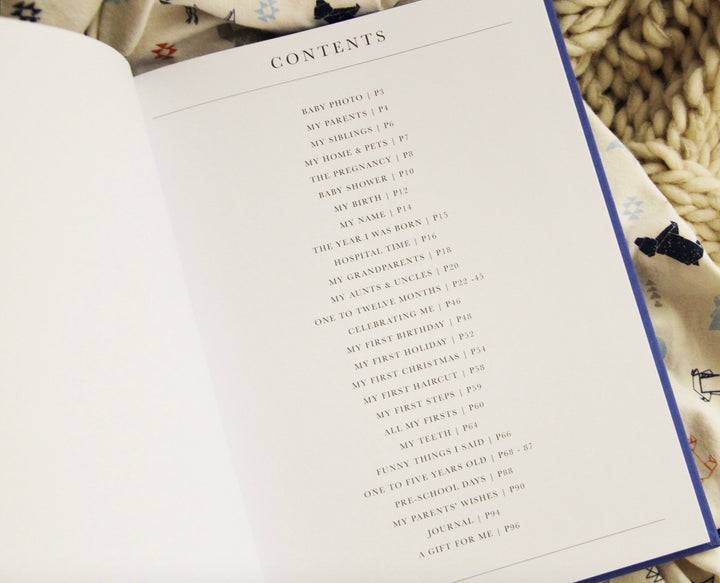 CONTENTS
BABY PHOTO | P3
MY PARENTS | P4
MY SIBLINGS | P6
MY HOME & PETS | P7
THE PREGNANCY | P8
BABY SHOWER | P10
MY BIRTH | P12
MY NAME | P14
THE YEAR I WAS BORN | P15
HOSPITAL TIME | P16
MY GRANDPARENTS | P18
MY AUNTS & UNCLES | P20
ONE TO TWELVE MONTHS | P22 -45
CELEBRATING ME | P46
MY FIRST BIRTHDAY | P48
MY FIRST HOLIDAY | P52
MY FIRST CHRISTMAS | P54
MY FIRST HAIRCUT | P58
MY FIRST STEPS | P59
ALL MY FIRSTS | P60
MY TEETH | P64
FUNNY THINGS I SAID | P66
ONE TO FIVE YEARS OLD | P68 - 87
PRE-SCHOOL DAYS | P88
MY PARENTS' WISHES | P90
JOURNAL | P94
A GIFT FOR ME | P96